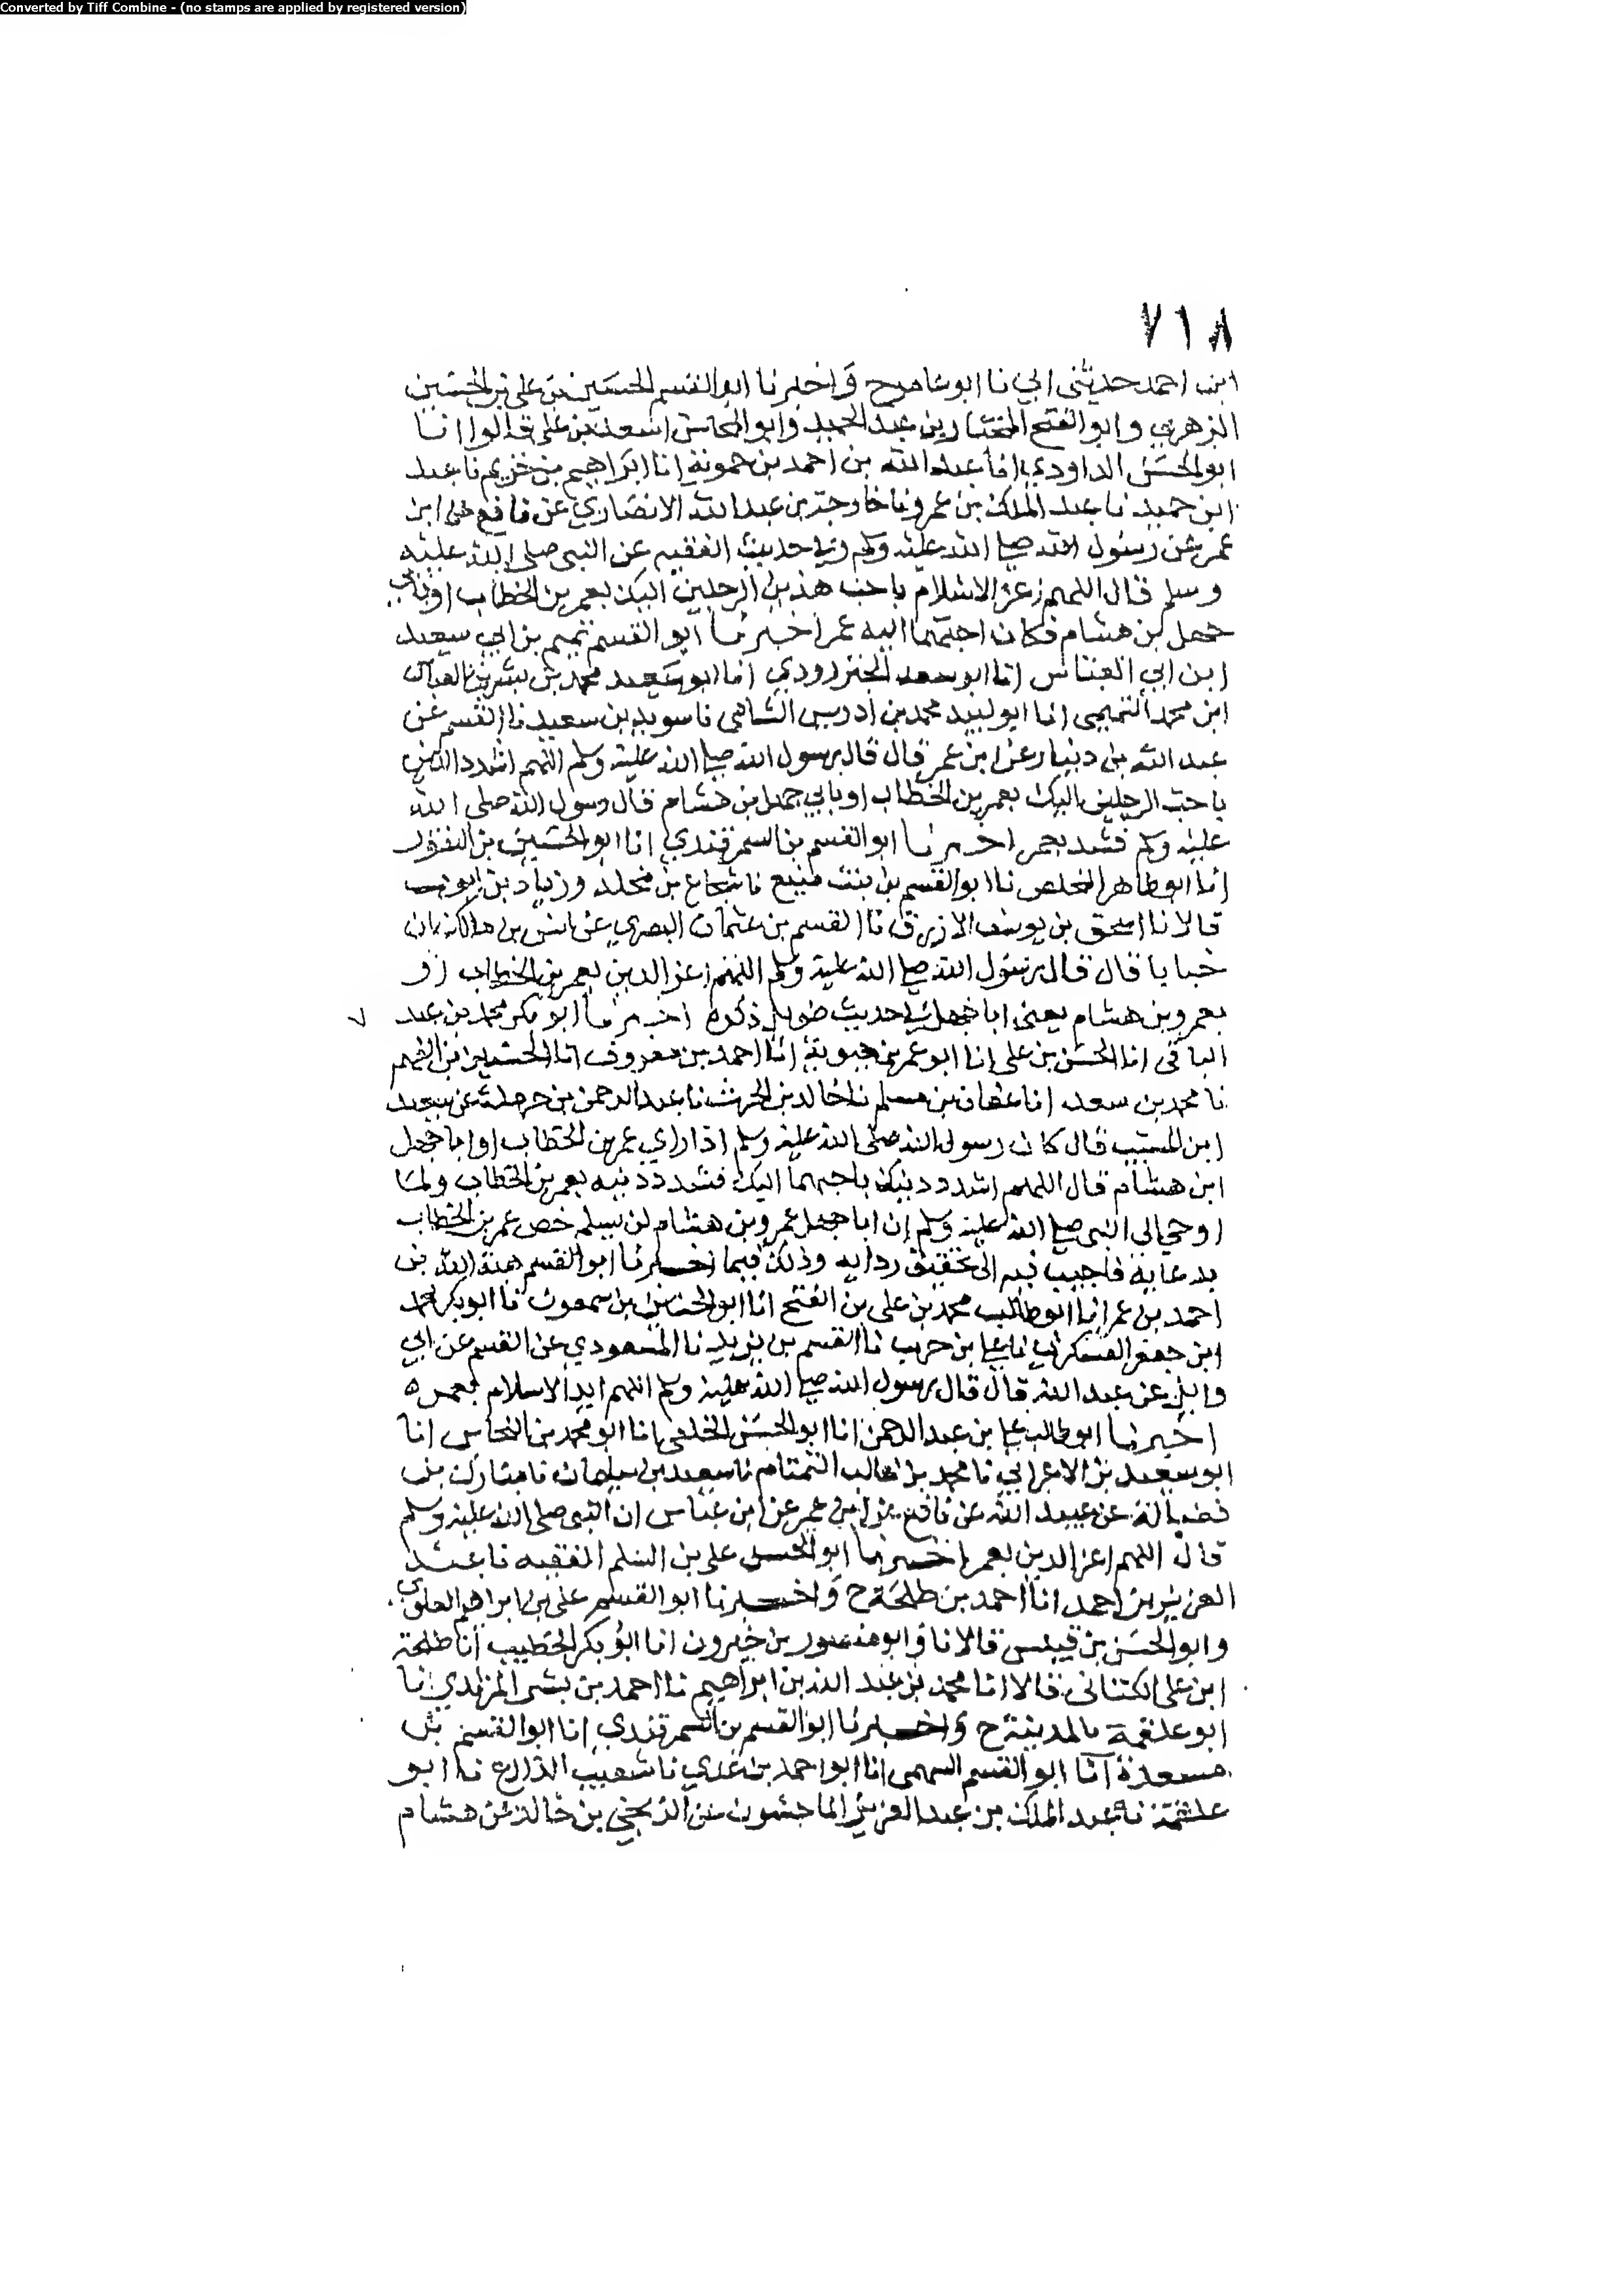 Converted by Tiff Combine - (no stamps are applied by registered version)
٧١٨
ابن احمد حدثني ابي نا ابو عامر ح واخبرنا ابو القسم الحسين بن علي بن الحسين
الزهري وابو الفتح المختار بن عبد الحميد وابو المحاسن اسعد بن علي قالوا انا
ابو الحسن الداودي انا عبد الله بن احمد بن حمويه انا ابراهيم بن خزيم نا عبد
ابن حميد نا عبد الملك بن عمرو نا خارجة بن عبد الله الانصاري عن نافع عن ابن
عمر عن رسول الله صلى الله عليه وسلم وفي حديث الفقيه عن النبي صلى الله عليه
وسلم قال اللهم اعز الاسلام باحب هذين الرجلين اليك بعمر بن الخطاب او بابي
جهل بن هشام فكان احبهما اليه عمر اخبرنا ابو القسم تميم بن ابي سعيد
ابن ابي العباس انا ابو سعد الجنزرودي انا ابو سعيد محمد بن بشر بن العباس
ابن محمد التميمي انا ابو لبيد محمد بن ادريس الشامي نا سويد بن سعيد نا القسم عن
عبد الله بن دينار عن ابن عمر قال قال رسول الله صلى الله عليه وسلم اللهم اشدد الدين
باحب الرجلين اليك بعمر بن الخطاب او بابي جهل بن هشام قال رسول الله صلى الله
عليه وسلم فشد بعمر اخبرنا ابو القسم بن السمرقندي انا ابو الحسين بن النقور
انا ابو طاهر المخلص نا ابو القسم بن بنت منيع نا شجاع بن مخلد وزياد بن ايوب
قالا نا اسحق بن يوسف الازرق نا القسم بن عثمان البصري عن انس بن مالك ان
خبابا قال قال رسول الله صلى الله عليه وسلم اللهم اعز الدين بعمر بن الخطاب او
بعمرو بن هشام يعني ابا جهل في حديث طويل ذكره اخبرنا ابو بكر محمد بن عبد
الباقي انا الحسن بن علي انا ابو عمر بن حيوية انا احمد بن معروف انا الحسين بن الفهم
نا محمد بن سعد انا عفان بن مسلم نا خالد بن الحرث نا عبد الرحمن بن حرملة عن سعيد
ابن المسيب قال كان رسول الله صلى الله عليه وسلم اذا راي عمر بن الخطاب او ابا جهل
ابن هشام قال اللهم اشدد دينك باحبهما اليك فشدد دينه بعمر بن الخطاب ولما
اوحي الى النبي صلى الله عليه وسلم ان ابا جهل عمرو بن هشام لن يسلم خص عمر بن الخطاب
بدعايه فاجيب فيه وذلك فيما اخبرنا ابو القسم هبة الله بن
احمد بن عمر انا ابو طالب محمد بن علي بن الفتح انا ابو الحسين بن سمعون نا ابو بكر محمد
ابن جعفر العسكري نا علي بن حرب نا القسم بن يزيد نا المسعودي عن القسم عن ابي
وايل عن عبد الله قال قال رسول الله صلى الله عليه وسلم اللهم ايد الاسلام بعمر ه
اخبرنا ابو طالب علي بن عبد الرحمن انا ابو الحسن الخلعي انا ابو محمد بن النحاس انا
ابو سعيد بن الاعرابي نا محمد بن غالب التمتام نا سعيد بن سليمان نا مبارك بن
فضالة عن عبيد الله عن نافع عن ابن عمر عن ابن عباس ان النبي صلى الله عليه وسلم
قال اللهم اعز الدين بعمر اخبرنا ابو الحسن علي بن المسلم الفقيه نا عبد
العزيز بن احمد انا احمد بن طلحة ح واخبرنا ابو القسم علي بن ابراهيم العلوي
وابو الحسن بن قبيس قالا نا وابو منصور بن خيرون انا ابو بكر الخطيب انا طلحة
ابن علي الكتاني قالا انا محمد بن عبد الله بن ابراهيم نا احمد بن بشر المرثدي نا
ابو علقمة بالمدينة ح واخبرنا ابو القسم بن السمرقندي انا ابو القسم بن
مسعدة انا ابو القسم السهمي انا ابو احمد بن عدي نا شعيب الذارع نا ابو
علقمة نا عبد الملك بن عبد العزيز الماجشون عن الزنجي بن خالد عن هشام